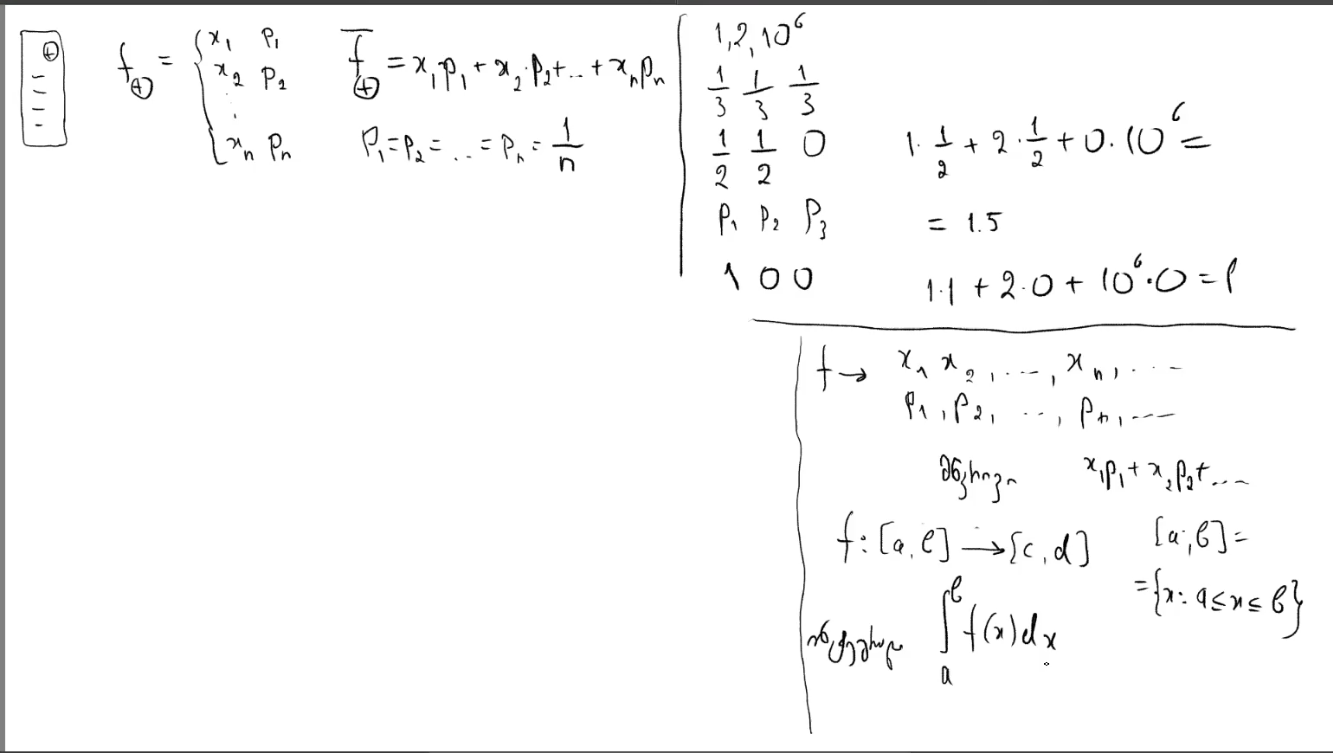 f⊕ = { x₁ p₁
x₂ p₂
⋮
xₙ pₙ
f̅⊕ = x₁p₁ + x₂·p₂ + ... + xₙpₙ
p₁ = p₂ = ... = pₙ = 1/n
1, 2, 10⁶
1/3 1/3 1/3
1/2 1/2 0
1·1/2 + 2·1/2 + 0·10⁶ =
p₁ p₂ p₃
= 1.5
1 0 0
1·1 + 2·0 + 10⁶·0 = 1
f → x₁ x₂, ..., xₙ, ...
p₁, p₂, ..., pₙ, ...
მწკრივი x₁p₁ + x₂p₂ + ...
f: [a, b] → [c, d]
[a, b] =
= {x: a ≤ x ≤ b}
ინტეგრალი ∫ₐᵇ f(x)dx